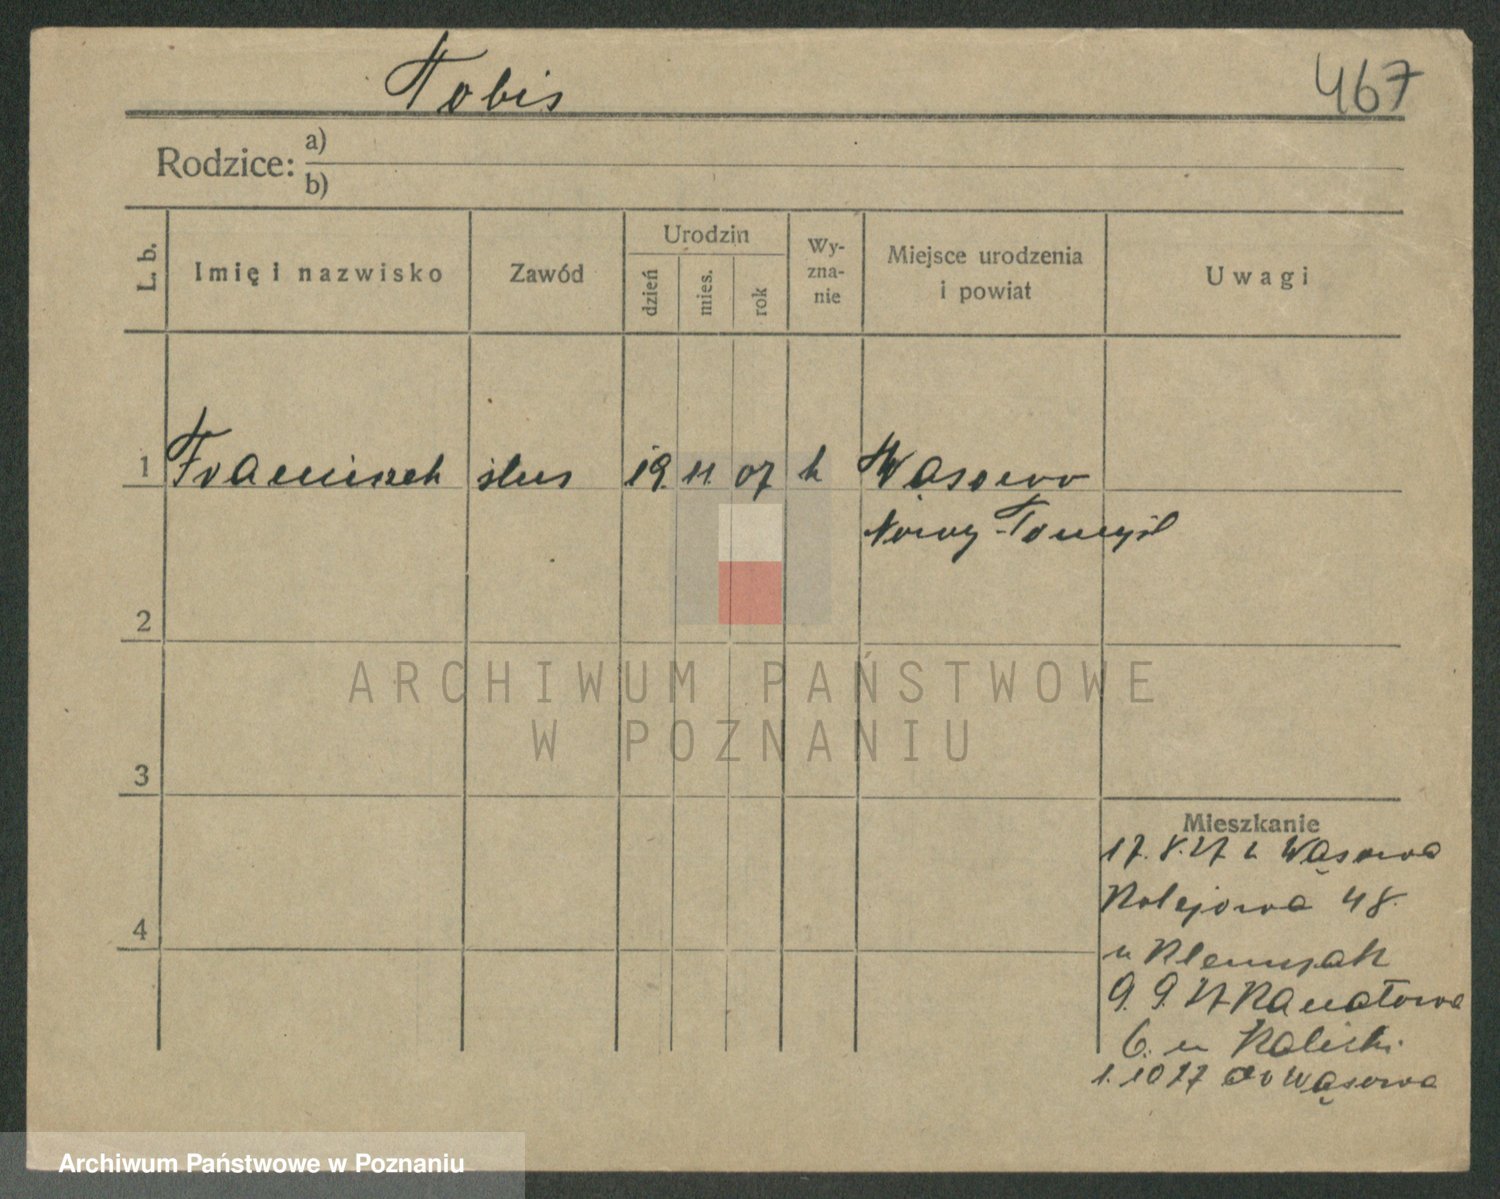 Tobis
467
Rodzice:
a)
b)
L. b.
Imię i nazwisko
Zawód
Urodzin
dzień
mies.
rok
Wy-
zna-
nie
Miejsce urodzenia
i powiat
Uwagi
1 Franciszek ślus 19. 11. 07 k Wąsowo
Nowy-Tomyśl
2
3
4
Mieszkanie
17.8.27 z Wąsowa
Kolejowa 48.
u
9. 9. 27 Kanałowa
6. u Kaliski
1.10 27 do Wąsowa
ARCHIWUM PAŃSTWOWE
W POZNANIU
Archiwum Państwowe w Poznaniu